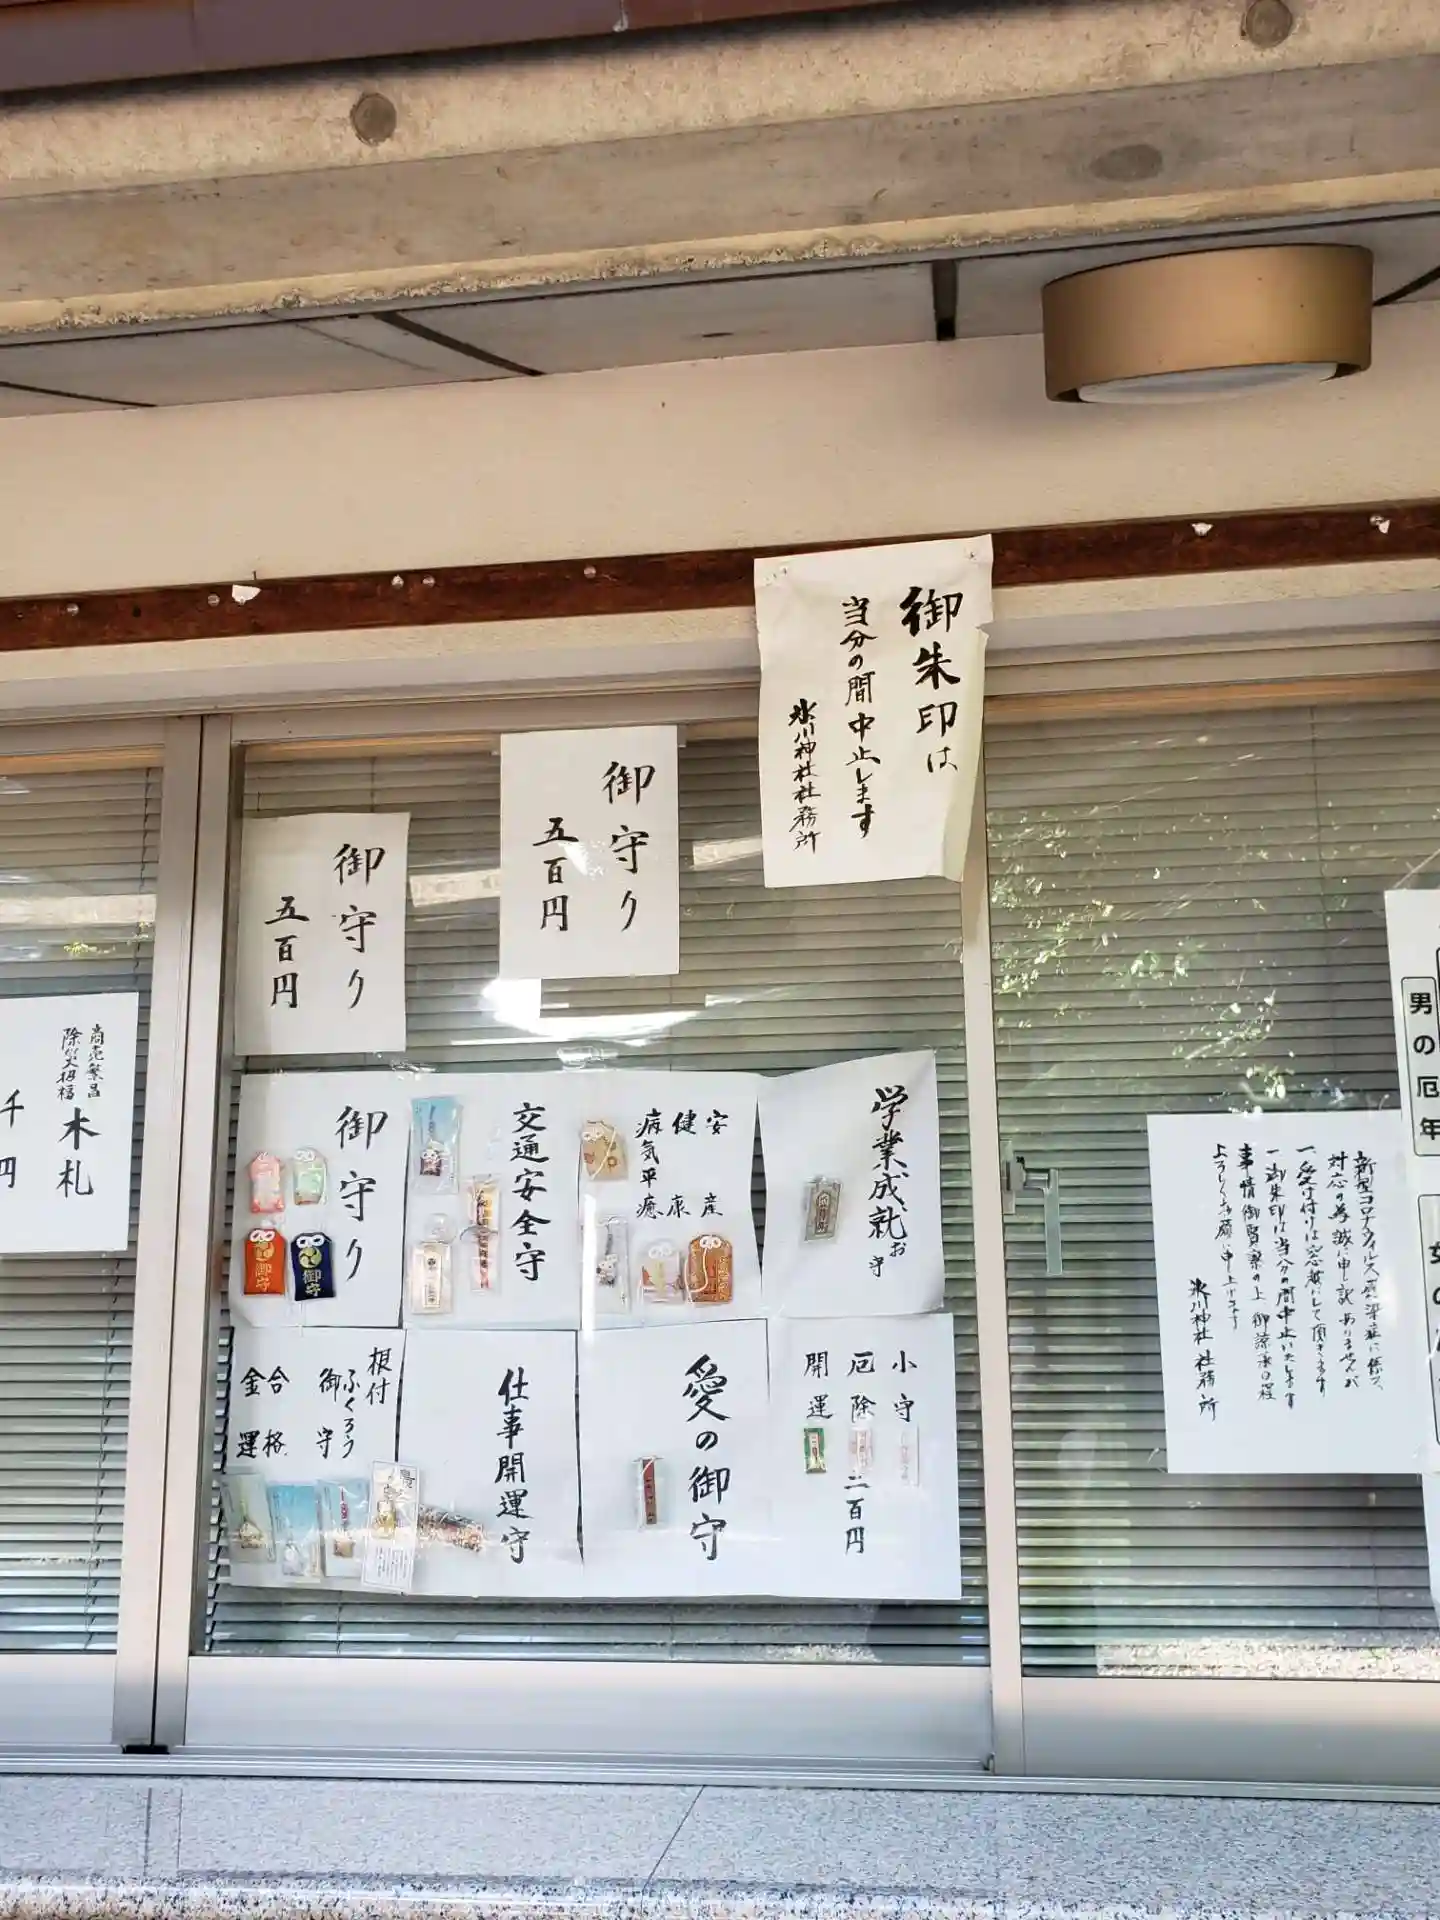 御朱印は
当分の間中止します
氷川神社社務所
御守り
五百円
御守り
五百円
商売繁昌
除災招福
木札
千円
御守り
交通安全守
安産
健康
病気平癒
学業成就お守
根付
ふくろう
御守
合格
金運
仕事開運守
愛の御守
小守
厄除
開運
二百円
新型コロナウイルス感染症に係る
対応の為誠に申し訳ありませんが
一受け付けは窓越しにて頂きます
一御朱印は当分の間中止いたします
事情御賢察の上御諒承の程
よろしくお願い申し上げます
氷川神社社務所
男の厄年
御守
御守